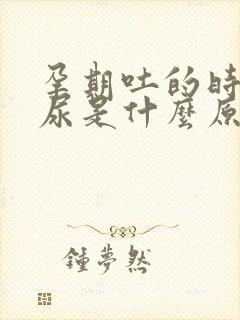 孕期吐的時
尿是什麼原
鍾夢然